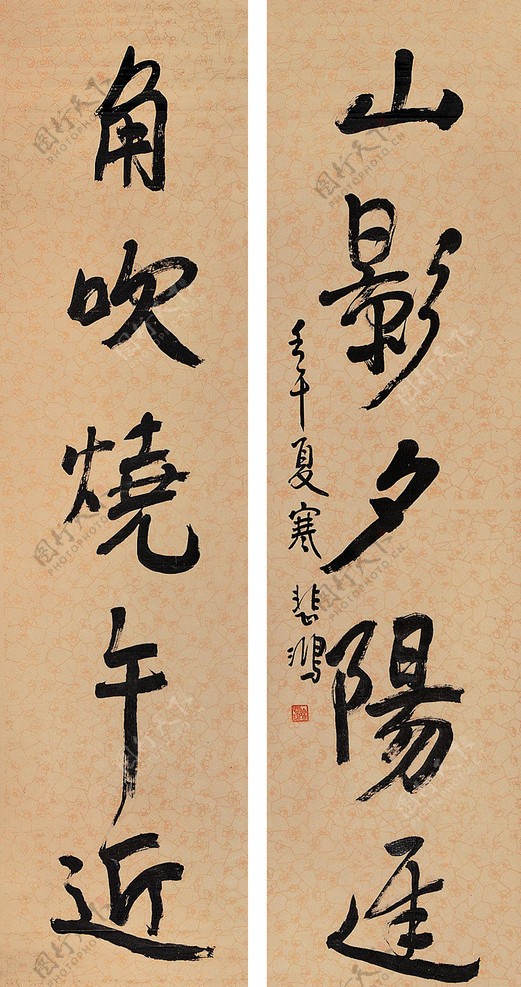 山影夕陽遲
壬午夏寒 悲鴻
角吹燒午近
图行天下
PHOTOPHOTO.CN